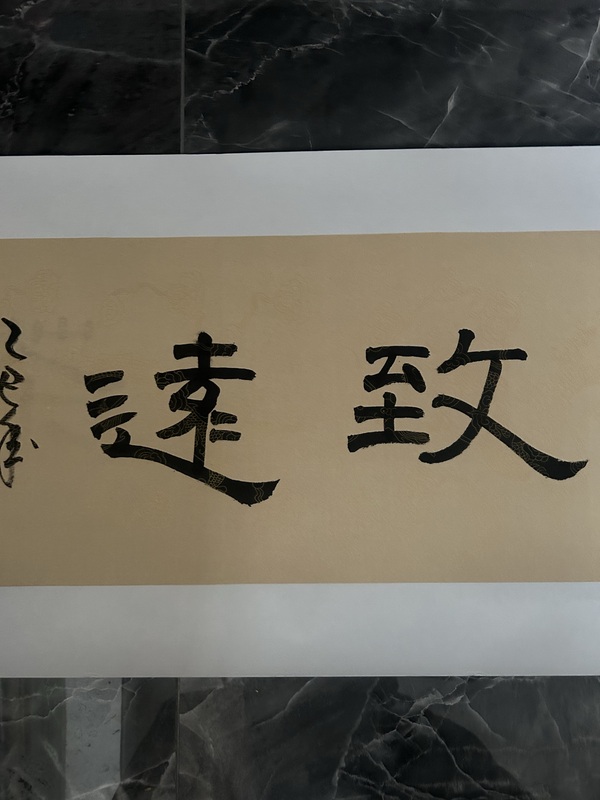 致遠
乙巳